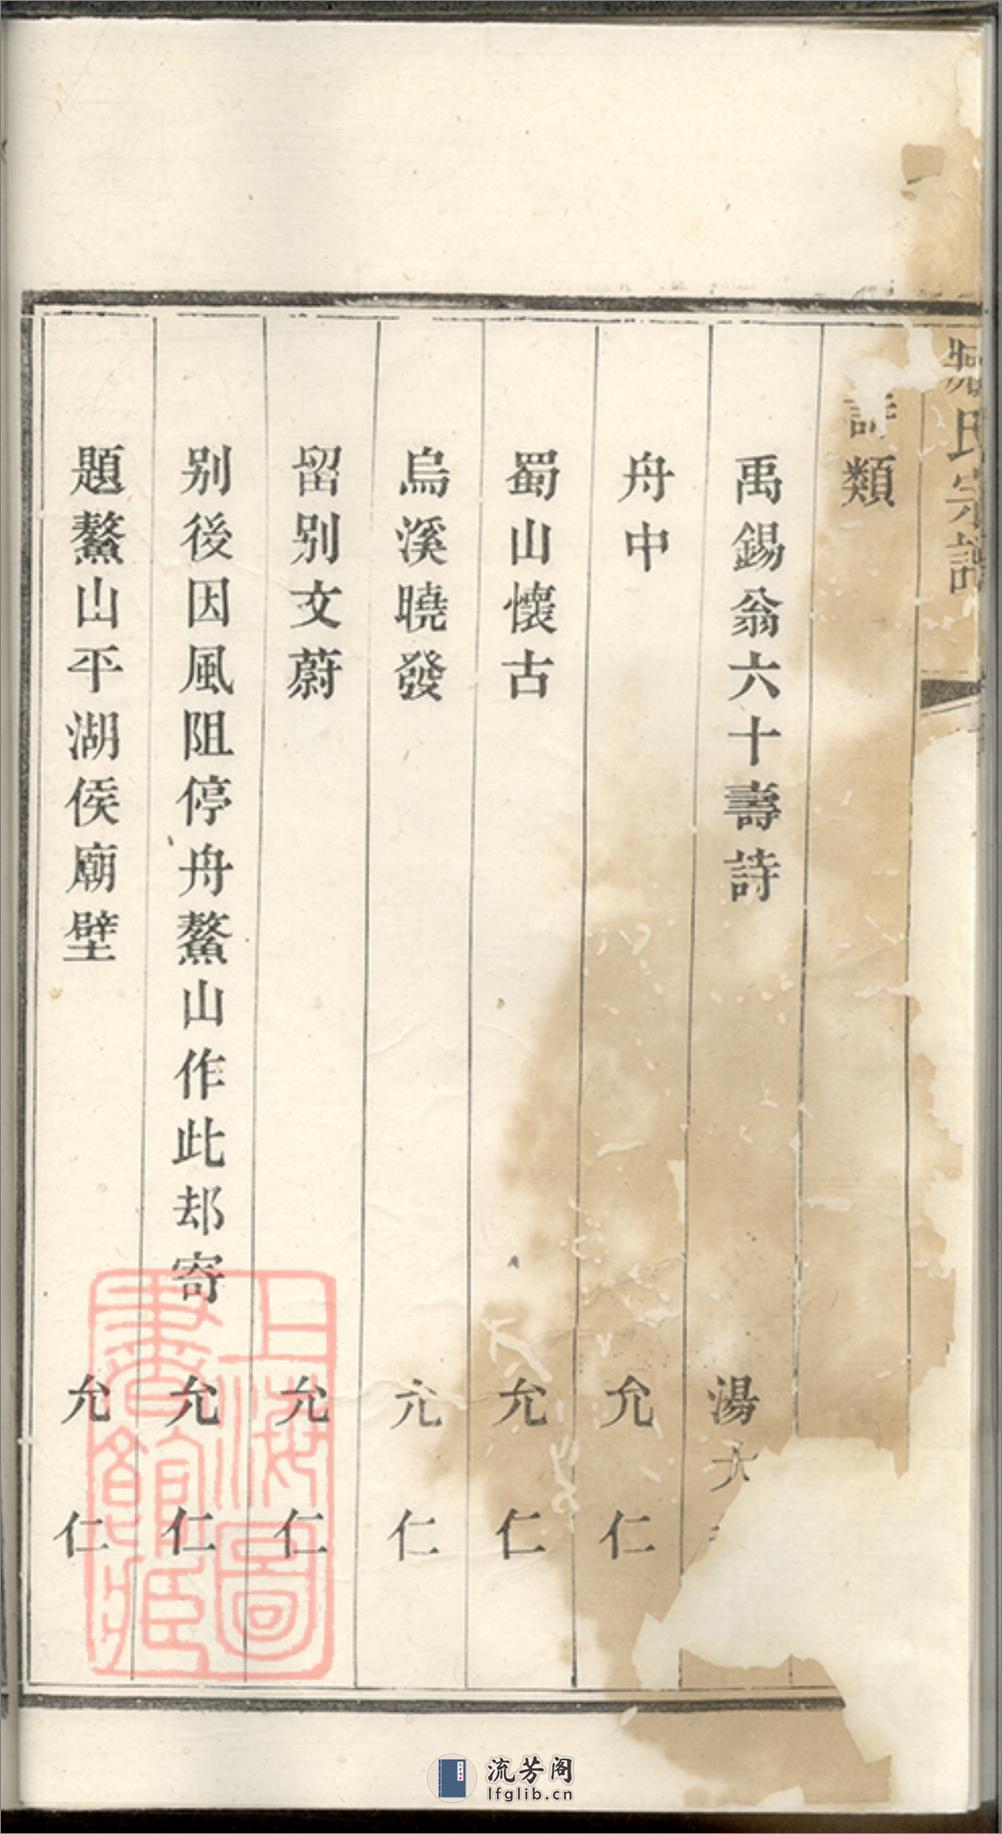 氏宗譜
詩類
禹錫翁六十壽詩 湯大
舟中 允仁
蜀山懷古 允仁
烏溪曉發 允仁
留別文蔚 允仁
別後因風阻停舟鰲山作此却寄 允仁
題鰲山平湖侯廟壁 允仁
上海圖書館藏
流芳阁
lfglib.cn